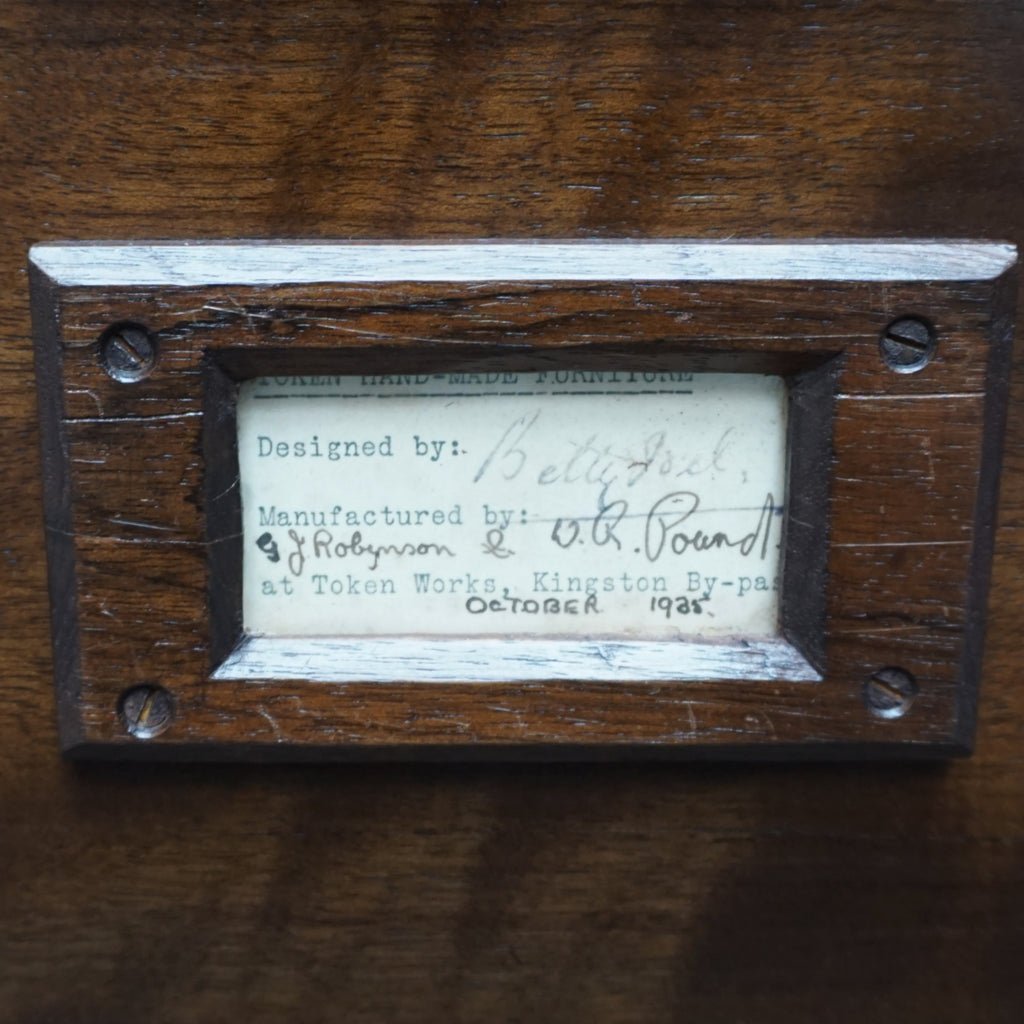 TOKEN HAND-MADE FURNITURE
Designed by: Betty Joel.
Manufactured by:
G J Robynson & W. R. Pound.
at Token Works, Kingston By-pas
OCTOBER 1935.